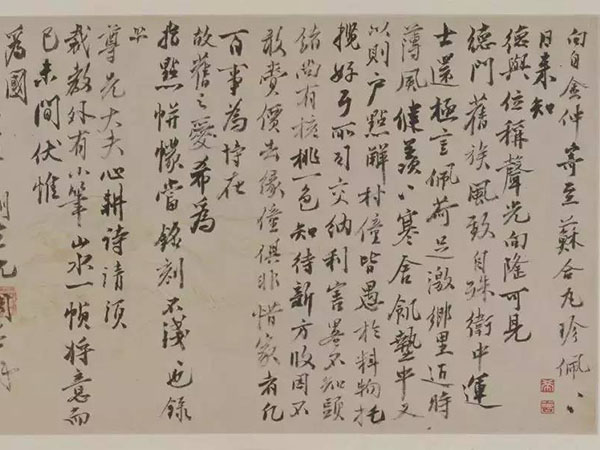 向自金仲寄至蘇合丸珍佩〻
日來知
德與位稱聲光向隆可見
德門舊族風致自殊衛中運
士還極言佩荷足激鄉里近時
薄風健羨〻寒舍飢墊中又
以則户點解村僮皆愚於料物托
攬好歹所司交納利害畧不知頭
緒尚有核桃一色知待新方收因不
敢費價去緣僮俱非惜家者凡
百事為恃在
故舊之愛希為
指點帡幪當錄刻不淺也錄
上
尊先大夫心耕詩請須
裁教外有小筆山水一幀將意而
已未間伏惟
為國